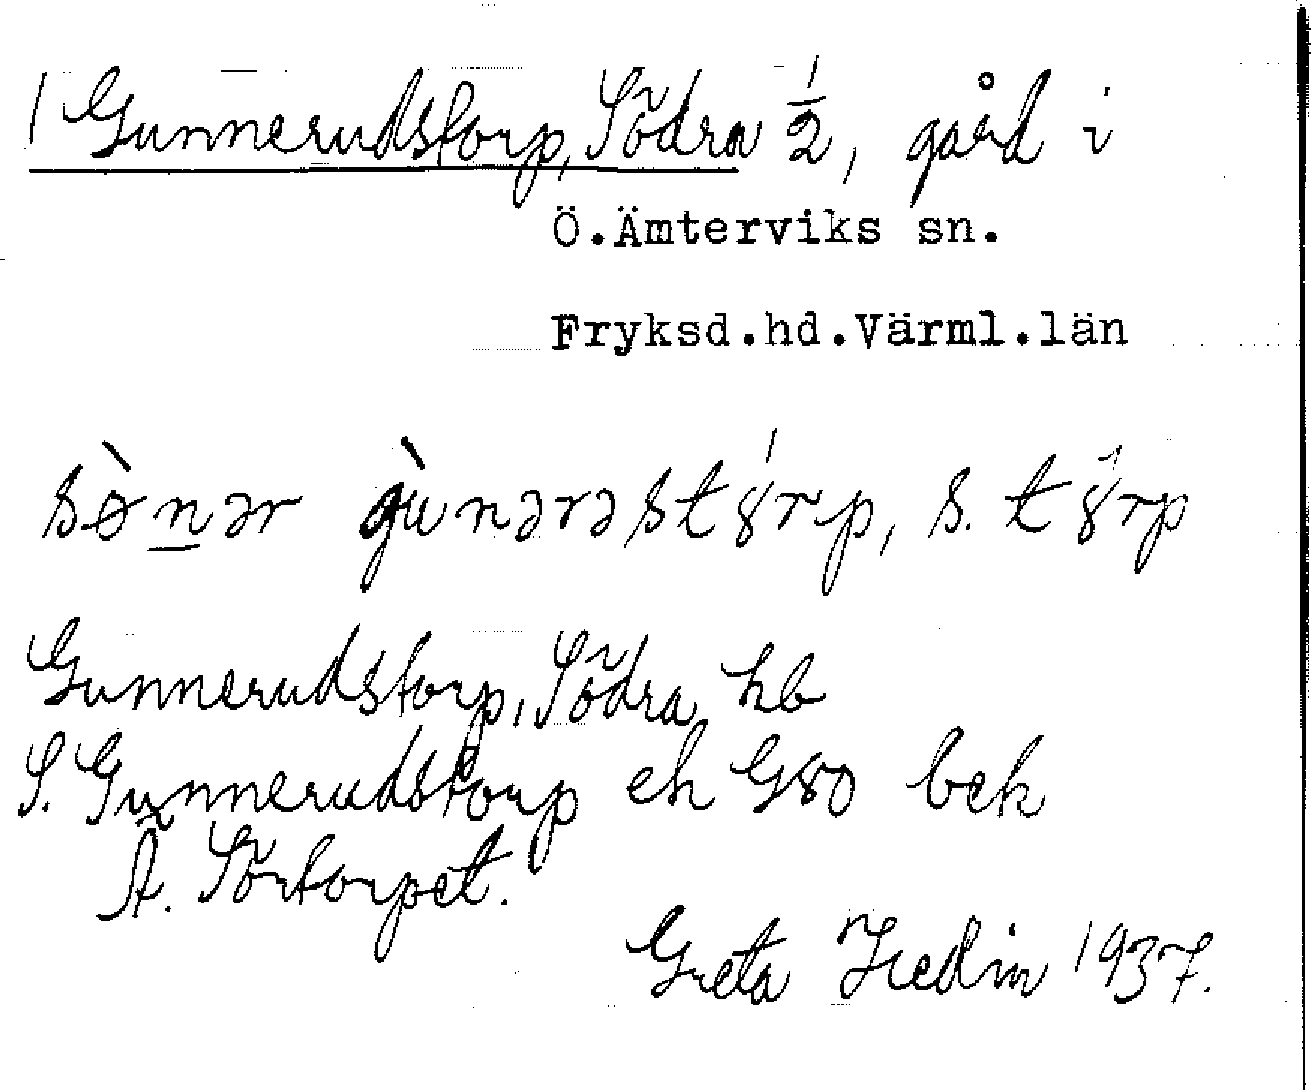 1 Gunnerudstorp, Södra 1/2, gård i
Ö.Ämterviks sn.
Fryksd.hd.Värml.län
sø̀nər gùnərəstýrp, s. týrp
Gunnerudstorp, Södra hb
S. Gunnerudstorp ek G80 bek
Ä. Sörtorpet.
Greta Hedin 1937.